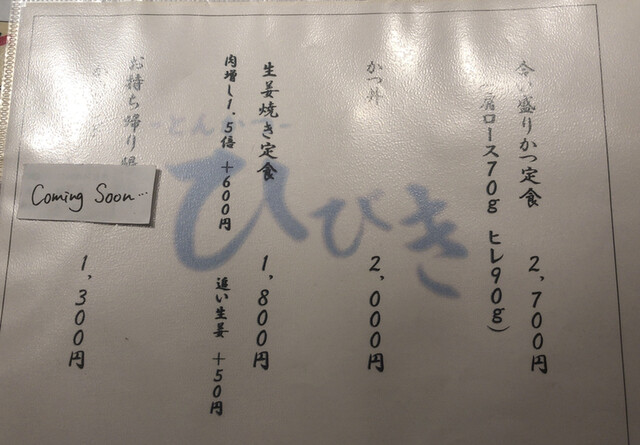 合い盛りかつ定食 2,700円
肩ロース70g ヒレ90g)
かつ丼 2,000円
生姜焼き定食 1,800円
肉増し1.5倍 +600円 追い生姜 +50円
お持ち帰り
1,300円
Coming Soon...
とんかつ
ひびき